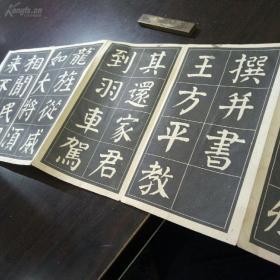 撰并書
王方平教
其還家君
到羽車駕
龍旌從威
如大將頃
相聞民
來不